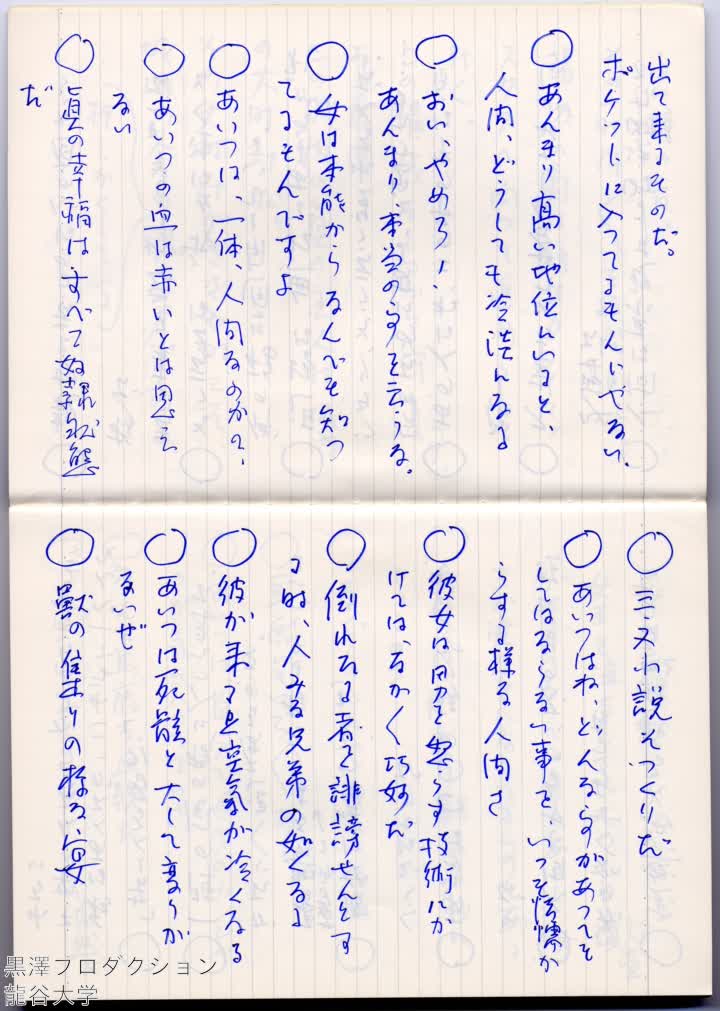 出て来るものだ。
ポケットに入つてるもんぢやない、
○ あんまり高い地位にいると、
人間、どうしても冷淡になるよ
○ おい、やめろ!
あんまり、本当の事を云うな。
○ 女は本能からなんでも知つ
てるもんですよ
○ あいつは、一体、人間なのか?
○ あいつの血は赤いとは思え
ない
○ 眞の幸福はすべて奴隷状態
だ
○ 三文小説そつくりだ
○ あいつはね、どんな事があつても
してはならない事を、いつも
らする様な人間さ
○ 彼女は男を怒らす技術にか
けては、なかなか巧妙だ
○ 倒れたる者を誹謗せんとす
る時、人みな兄弟の如くなる
○ 彼が来ると空氣が冷くなる
○ あいつは死骸と大して変りが
ないぜ
○ 獸の集まりの様な宴
黒澤プロダクション
龍谷大学